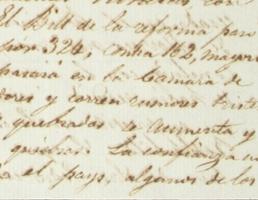 el Bill de la reforma paso
por 324, contra 162, mayori
pasará en la Camara de
dores y corren rumores triste
quebrados se aumenta y
quiebran La confianza
a el pays, algunos de los